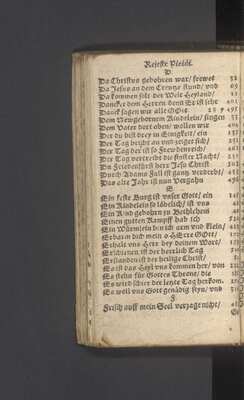 Rejestr Pieśni.
D
Da Christus gebohren war/ frewet 32
Da Jesus an dem Creutze stund/ und 69
Da kommen solt der Welt Heyland/
Dancket dem Herren denn Er ist sehr 401
Danck sagen wir alle GOtt
Dem Newgebohrnen Kindelein/ singen 33
Dem Vater dort oben/ wollen wir 404
Der du bist drey in Einigkeit/ ein
Der Tag bricht an und zeiget sich/
Der Tag der ist so Frewdenreich/
Der Tag vertreibt die finster Nacht/
Du Friedenfürst Herr Jesu Christ
Durch Adams Fall ist gantz verderbt/
Das alte Jahr ist nun Vergahn
E
Ein feste Burg ist unser Gott/ ein
Ein Kindelein so löbelich/ ist uns
Ein Kind gebohrn zu Bethlehem
Einen gutten Kampff hab ich
Ein Würmlein bin ich arm und klein/
Erbarm dich mein o HErre GOtt/
Erhalt uns Herr bey deinem Wort/
Erschienen ist der herrlich Tag
Erstanden ist der heilige Christ/
Es ist das Heyl uns kommen her/ von
Es stehn für Gottes Throne/ die
Es wird schier der letzte Tag herkom.
Es woll uns Gott genädig seyn/ und
F
Frisch auff mein Seel verzage nicht/